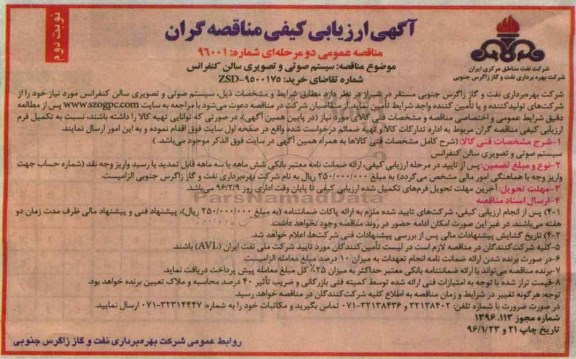 نوبت دوم
آگهی ارزیابی کیفی مناقصه گران
مناقصه عمومی دو مرحله‌ای شماره: ۹۶۰۰۱
موضوع مناقصه: سیستم صوتی و تصویری سالن کنفرانس
شماره تقاضای خرید: ZSD-9500175
شرکت نفت مناطق مرکزی ایران
شرکت بهره‌برداری نفت و گاز زاگرس جنوبی
شرکت بهره‌برداری نفت و گاز زاگرس جنوبی مستقر در شیراز در نظر دارد مطابق شرایط و مشخصات ذیل، سیستم صوتی و تصویری سالن کنفرانس مورد نیاز خود را از
شرکت‌های تولیدکننده و یا تأمین کننده واجد شرایط تأمین نماید. از متقاضیان شرکت در مناقصه دعوت می‌شود با مراجعه به سایت www.szogpc.com پس از مطالعه
دقیق شرایط عمومی و اختصاصی مناقصه و مشخصات فنی کالای مورد نیاز (در پایین همین آگهی)، در صورتی که توانایی تهیه کالا را داشته باشند، نسبت به تکمیل فرم
ارزیابی کیفی مناقصه گران مربوط به اداره تدارکات کالا و تهیه ضمائم درخواست شده واقع در صفحه اول سایت فوق اقدام نموده و به این امور ارسال نمایند.
۱-شرح مشخصات فنی کالا: (شرح کامل مشخصات فنی کالاها به همراه همین آگهی در سایت فوق الذکر موجود می‌باشد.)
سیستم صوتی و تصویری سالن کنفرانس
۲-نوع و مبلغ تضمین: پس از تایید در مرحله ارزیابی کیفی، ارائه ضمانت نامه معتبر بانکی شش ماهه با سه ماهه قابل تمدید یا رسید واریز وجه نقد (شماره حساب جهت
واریز وجه با هماهنگی امور مالی مشخص می‌گردد) به مبلغ ۲۵۰/۰۰۰/۰۰۰ ریال به نام شرکت بهره‌برداری نفت و گاز زاگرس جنوبی الزامیست.
۳-مهلت تحویل: آخرین مهلت تحویل فرم‌های تکمیل شده ارزیابی کیفی تا پایان وقت اداری روز ۹۶/۲/۹ می‌باشد.
ParsNamadData
۴-ارسال اسناد مناقصه
۴-۱) پس از انجام ارزیابی کیفی، شرکت‌های تایید شده ملزم به ارائه پاکات ضمانتنامه (به مبلغ ۲۵۰/۰۰۰/۰۰۰ ریال)، پیشنهاد فنی و پیشنهاد مالی ظرف مدت زمان دو
هفته می‌باشند. در غیر این صورت امکان ادامه حضور در روند مناقصه وجود نخواهد داشت.
۴-۲) تاریخ گشایش پیشنهادات مالی پس از بررسی پیشنهادات فنی شرکت‌ها، اعلام خواهد شد.
۵-کلیه شرکت‌کنندگان در مناقصه لازم است در لیست تأمین‌کنندگان مورد تایید شرکت ملی نفت ایران (AVL) باشند.
۶-در صورت برنده شدن ارائه ضمانت نامه انجام تعهدات به میزان ۱۰ درصد مبلغ معامله الزامیست.
۷-برنده مناقصه می‌تواند با ارائه ضمانتنامه بانکی معتبر حداکثر به میزان ۲۵٪ کل مبلغ معامله پیش پرداخت دریافت نماید.
۸-قیمت تراز شده با توجه به امتیازات فنی ارائه شده توسط کمیته فنی بازرگانی و ضریب تأثیر ۴۰ درصد محاسبه و ملاک تعیین برنده خواهد بود.
توجه: هر گونه تغییر در شرایط و زمان مناقصه به اطلاع کلیه شرکت‌کنندگان در مناقصه خواهد رسید.
در صورت ضرورت با شماره تلفن: ۳۲۱۳۸۴۰۲ و ۳۲۱۳۸۴۳۶-۰۷۱ تماس بگیرید و مکاتبات خود را به شماره ۳۲۳۱۴۴۴۷-۰۷۱ ارسال نمایید.
شماره مجوز ۱۱۳. ۱۳۹۶
تاریخ چاپ ۲۱ و ۹۶/۱/۲۳
روابط عمومی شرکت بهره‌برداری نفت و گاز زاگرس جنوبی